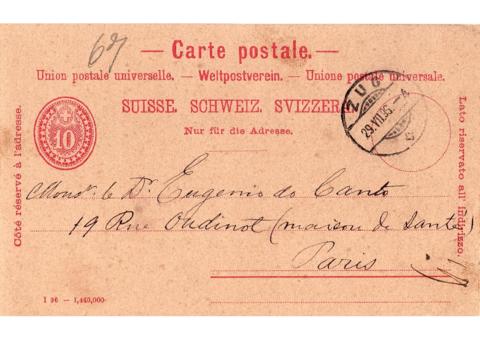 67
— Carte postale. —
Union postale universelle. — Weltpostverein. — Unione postale universale.
SUISSE. SCHWEIZ. SVIZZERA
Nur für die Adresse.
ZUG
29.VII.96.-4
10
Côté réservé à l'adresse.
Lato riservato all' indirizzo.
Monsr. le Dr. Eugenio do Canto
19 Rue Oudinot (maison de santé)
Paris
I 96 — 1,440,000